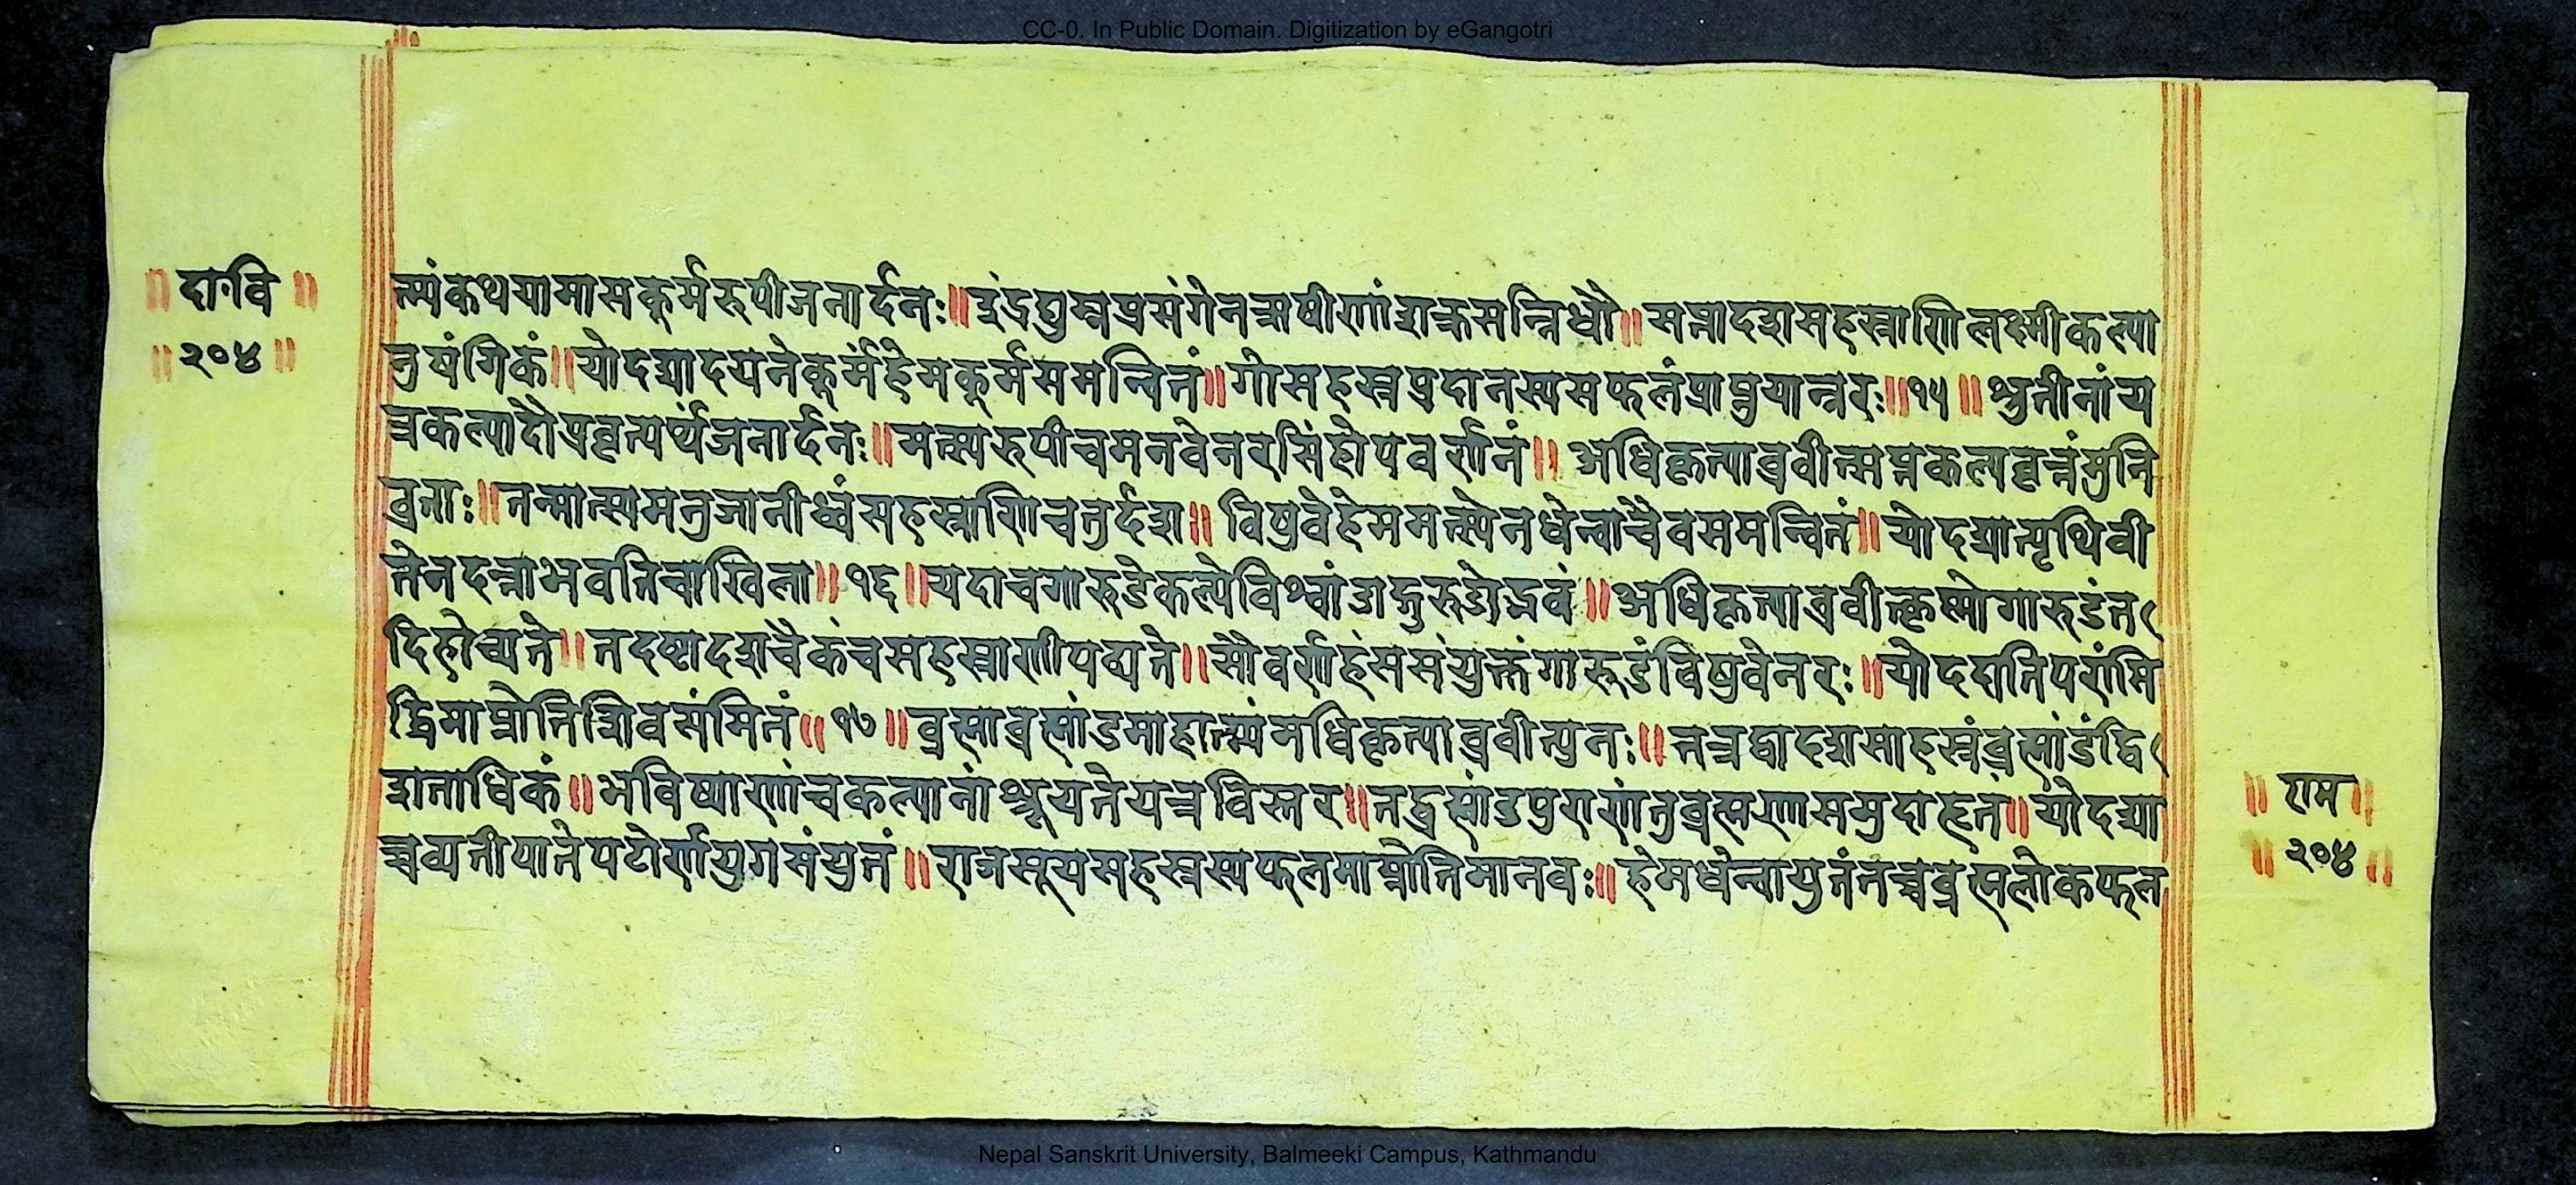 CC-0. In Public Domain. Digitization by eGangotri
॥ दा॰वि ॥
॥ २०४ ॥
त्म्यंकथयामासकूर्मरुपीजनार्दनः॥इंद्रद्युम्नप्रसंगेनऋषीणांशक्रसन्निधौ॥सप्तादशसहस्राणिलक्ष्मीकल्पा
नुषंगिकं॥योदद्यादयनेकूर्मंहेमकूर्मसमन्वितं॥गोसहस्रप्रदानस्यसफलंप्राप्नुयान्नरः॥१५॥श्रुतीनांय
त्रकल्पादौप्रवृत्यर्थंजनार्दनः॥मत्स्यरुपीचमनवेनरसिंहोपवर्णनं॥अधिकृत्याब्रवीत्सप्तकल्पवृत्तंमुनि
व्रताः॥तन्मात्स्यमनुजानीध्वंसहस्राणिचतुर्दश॥विषुवेहेममत्स्येनधेन्वाचैवसमन्वितं॥योदद्यात्पृथिवी
तेनदत्ताभवतिचाखिला॥१६॥यदाचगारुडेकल्पेविश्वांडाद्गुरुडोद्भवं॥अधिकृत्याब्रवीत्कृष्णोगारुडंत
दिहोच्यते॥तदष्टादशचैकंचसहस्राणीपठ्यते॥सौवर्णहंससंयुक्तंगारूडंविषुवेनरः॥योददातिपरांमि
द्धिमाप्नोतिशिवसंमितं॥१७॥ब्रह्माब्रह्मांडमाहात्म्यंमधिकृत्याब्रवीत्पुनः॥तत्रद्वादशसाहस्रंब्रह्मांडंद्वि
शताधिकं॥भविष्याणांचकल्पानांश्रूयतेयत्रविस्तर॥तद्ब्रह्मांडपुराणंतुब्रह्मणासमुदाहृतं॥योदद्या
च्चव्यतीपातेपटोर्णयुगसंयुतं॥राजसूयसहस्रस्यफलमाप्नोतिमानवः॥हेमधेन्वायुतंतच्चब्रह्मलोकफल
॥ राम ॥
॥ २०४ ॥
Nepal Sanskrit University, Balmeeki Campus, Kathmandu